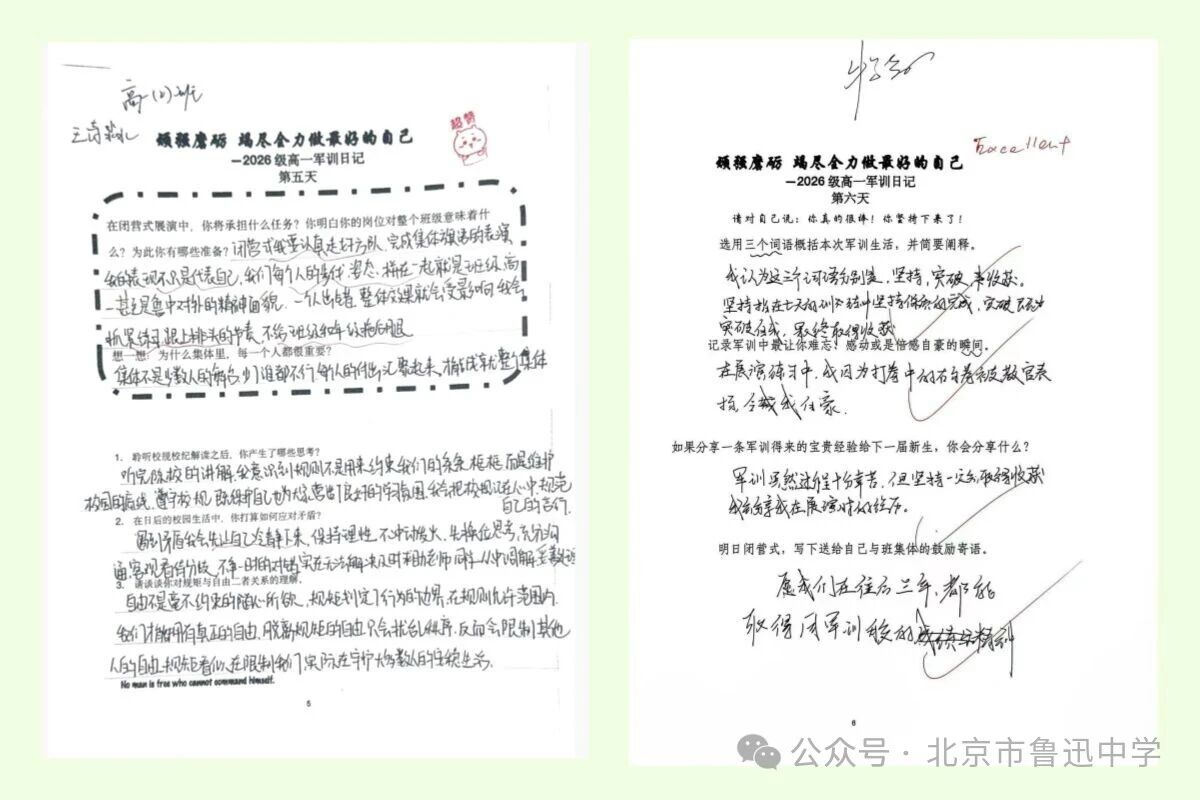 高一(2)班
超赞
顽强磨砺 竭尽全力做最好的自己
—2026级高一军训日记
第五天
在闭营式展演中，你将承担什么任务？你明白你的岗位对整个班级意味着什
么？为此你有哪些准备？闭营式我要认真走好方队，完成集体旗语的表演
我的表现不只是代表自己，我们每个人的步伐，姿态，拼在一起就是班级，高
一甚至是鲁中对外的精神面貌，一个人出错，整体效果就会受影响，我会
抓紧练习，跟上排头的节奏，不给班级和年级拖后腿
想一想：为什么集体里，每一个人都很重要？
集体不是少数人的舞台，少了谁都不行，每人的付出汇聚起来，才能成就整个集体
1. 聆听校规校纪解读之后，你产生了哪些思考？
听完陈校的讲解，我意识到规则不是用来约束我们的条条框框，而是维护
校园的底线，遵守校规，既保护自己也为大家营造了良好的学习氛围，我会把校规记在心中，规范
自己的言行。
2. 在日后的校园生活中，你打算如何应对矛盾？
遇到矛盾我会先让自己冷静下来，保持理性，不冲动发火，先换位思考，充分沟
通，客观看待分歧，不争一时的对错，实在无法解决及时求助老师同学从中调解，妥善处理
3. 请谈谈你对规矩与自由二者关系的理解。
自由不是毫不约束的随心所欲，规矩划定了行为的边界，在规则允许范围内，
我们才能拥有真正的自由，脱离规矩的自由只会扰乱秩序，反而会限制其他
人的自由，规矩看似在限制我们，实际在守护大多数人的安稳生活。
No man is free who cannot command himself.
5
Excellent
顽强磨砺 竭尽全力做最好的自己
—2026级高一军训日记
第六天
请对自己说：你真的很棒！你坚持下来了！
选用三个词语概括本次军训生活，并简要阐释。
我认为这三个词语分别是，坚持，突破，来收获。
坚持指在七天的训练中坚持保质的完成，突破即为
突破自我，最终取得收获
记录军训中最让你难忘、感动或是倍感自豪的瞬间。
在展演练习中，我因为打拳中的被教官表
扬，令我我自豪．
如果分享一条军训得来的宝贵经验给下一届新生，你会分享什么？
军训虽然过程十分辛苦，但坚持一定会取得收获
我会分享我在展演时的经历。
明日闭营式，写下送给自己与班集体的鼓励寄语。
愿我们在往后三年，都能
取得同军训般的
6
公众号 · 北京市鲁迅中学